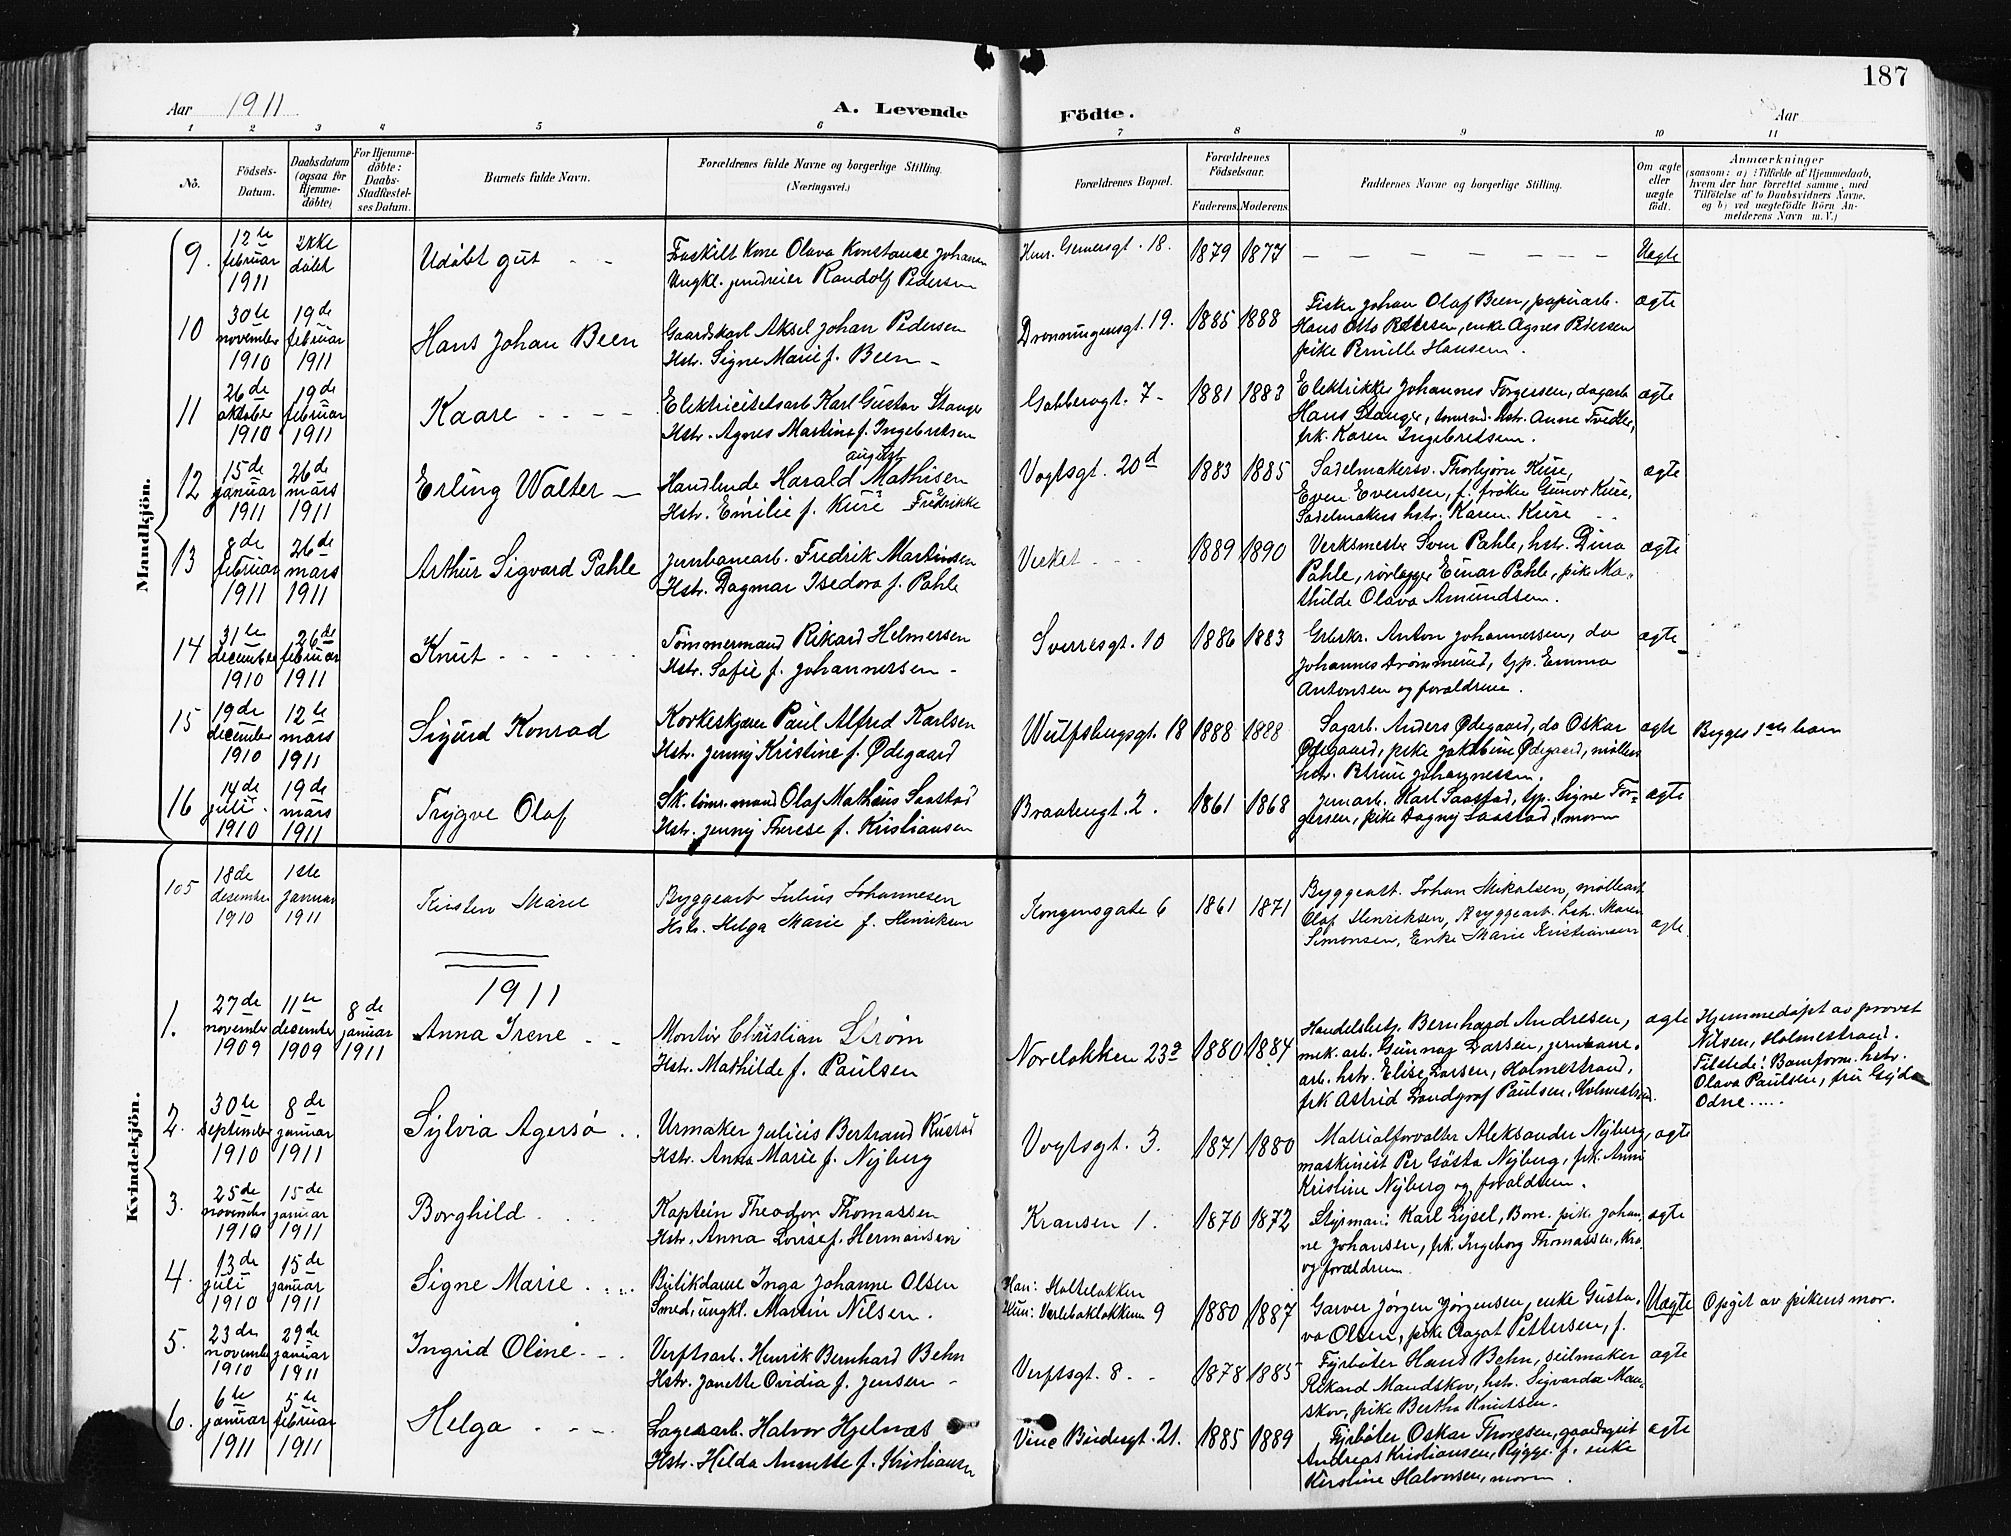 187
Aar 1911
A. Levende Födte.
Aar
1 2 3 4 5 6 7 8 9 10 11
No.
Födsels-Datum.
Daabsdatum (ogsaa for Hjemme-döbte)
For Hjemme-döbte: Daabs-Stadfæstel-ses Datum.
Barnets fulde Navn.
Forældrenes fulde Navne og borgerlige Stilling.
(Næringsvei.)
Forældrenes Bopæl.
Forældrenes Födselsaar.
Faderens. Moderens.
Faddernes Navne og borgerlige Stilling.
Om ægte eller uægte födt.
Anmærkninger
(saasom: a) i Tilfælde af Hjemmedaab,
hvem der har forrettet samme, med
Tilföielse af to Daabsvidners Navne,
og b) ved uægtefödte Börn An-
melderens Navn m. V.)
Mandkjön.
9. 12te februar 1911 Ikke døbt
Udøbt gut - -
Fraskilt Kone Olava Konstance Johansen
Ungkl. Randolf Pedersen
Gernersgt. 18. 1879 1877 - - - - - - - Uegte
10 30te november 1910 19de februar 1911
Hans Johan Been
Gaardskarl Aksel Johan Pedersen
Hstr. Signe Marie f. Been -
Dronningensgt. 19. 1885 1888
Fisker Johan Olaf Been, papirarb.
Hans Otto Petersen, enke Agnes Petersen
pike Pernille Hansen.
ægte
11 26de oktober 1910 19de februar 1911
Kaare - - - -
Elektricitetsarb. Karl Gustav Stange
Hstr. Agnes Martine f. Ingebretsen
7 - 1881 1883
Elektriker Johannes Torgersen, dagarb.
Hans Stange, hstr. Anne Tvedte,
frk. Karen Ingebretsen.
ægte
12 15de januar 1911 26de mars 1911
Erling Walter -
august
Handlende Harald Mathisen
Hstr. Emilie f. Kure Fredrikke
Vogtsgt. 20d 1883 1885
Sadelmakersv. Thorbjørn Kure,
Even Evensen, f. frøken Gunvor Kure,
Sadelmakers hstr. Karen Kure
ægte
13 8de februar 1911 26de mars 1911
Arthur Sigvard Pahle
Jernbanearb. Fredrik Martinsen
Hstr. Dagmar Isedora f. Pahle
Verket - - - 1889 1890
Verksmester Sven Pahle, hstr. Dina
Pahle, rørlægger Einar Pahle, pik Ma-
thilde Olava Amundsen.
ægte
14 31te december 1910 26de februar 1911
Knut - - - - - -
Tømmermand Rikard Helmersen
Hstr. Sofie f. Johannersen -
Sverresgt. 10 1886 1883
Anton Johannersen, do
Johannes Drømmerud, tjp. Emma
Antonsen og forældrene.
ægte
15 19de december 1910 12te mars 1911
Sigurd Konrad
Korkeskjærer Paul Alfred Karlsen
Hstr. Jenny Kristine f. Ødegaard
Wulfsbergsgt. 18 1888 1888
Sagarb. Anders Ødegaard, do Oskar
Ødegaard, pike Jakobine Ødegaard, møllers
hstr. Petrine Johannessen.
ægte
Begges 1ste barn
16 14de juli 1910 19de mars 1911
Trygve Olaf
Sk. tømr.mand Olaf Mathæus Saastad
Hstr. Jenny Therese f. Kristiansen
Braatengt. 2. 1861 1868
Jernarb. Karl Saastad, tjp. Signe Tor-
gersen, pike Dagny Saastad, moren
ægte
Kvindekjön.
105 18de desember 1910 1ste januar 1911
Kirsten Marie
Byggearb Julius Johannesen
Hstr. Helga Marie f. Henriksen
Kongensgate 6 1861 1871
Byggearb. Johan Mikalsen, møllearb
Olaf Henriksen, Byggearb. hstr. Maren
Simonsen, Enke Marie Kristiansen
ægte.
1911
1. 27de november 1909 11te desember 1909 8de januar 1911
Anna Irene - -
Montør Christian Strøm
Hstr. Mathilde f. Paulsen
Noreløkken 23a 1880 1884
Handelsbetj. Bernhard Andresen,
mek. arb. Gunnar Larsen, jernbane-
arb. hstr. Elise Larsen, Holmestrand,
frk Astrid Landgraf Paulsen, Holmestrand.
ægte
Hjemmedøpt av provst
Nilsen, Holmestrand.
Tilstede: Barnforn. hstr.
Olava Paulsen, fru Gyda
Odne.....
2. 30te september 1910 8de januar 1911
Sylvia Agersø ..
Urmaker Julius Bertrand Rustad
Hstr. Anna Marie f. Nyberg
Vogtsgt. 3. 1871 1880
Matrialforvalter Aleksander Nyberg,
maskinist Per Gøsta Nyberg, frk. Anna
Kristine Nyberg og forældrene.
ægte
3. 25de november 1910 15de januar 1911
Borghild - - -
Kaptein Theodor Thomassen
Hstr. Anna Lovise f. Hermansen
Kransen 1. 1870 1872
Styrmand Karl Lysel, pike Johan-
ne Johansen, frk. Ingeborg Thomassen,
og forældrene
ægte
4. 13de juli 1910 15de januar 1911
Signe Marie . . . .
Butikdame Inga Johanne Olsen
Smed, ungkl. Martin Nilsen.
Han: Holteløkken
Hun: 9 1880 1887
Garver Jørgen Jørgensen, enke Gusta-
va Olsen, pike Aagot Pettersen, f.
Uægte
Opgit av pikens mor.
5. 23de november 1910 29de januar 1911
Ingrid Oline - -
Verftsarb. Henrik Bernhard Behn
Hstr. Janette Ovidia f. Jensen -
Verftsgt. 8. - 1878 1885
Fyrbøter Hans Behn, seilmaker
Rikard Mandskov, hstr. Sigvarda Man-
skov, pike Bertha Knutsen.
ægte
6. 6te januar 1911 5te februar 1911
Helga - - - -
Lagerarb. Halvor Hjelmæs
Hstr. Hilda Annette f. Kristiansen
21. 1885 1889
Fyrbøter Oskar Thoresen, gaardsgut
Andreas Kristiansen, Rygge. f. enke
Kirstine Halvorsen, moren.
ægte